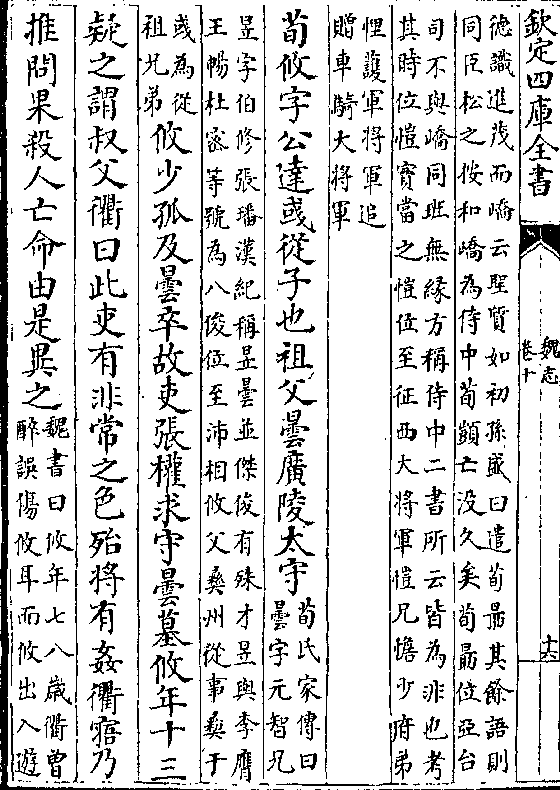 欽定四庫全書
魏志
卷十
十六
德識進茂而嶠云聖質如初孫盛曰遣荀朂其餘語則
同臣松之按和嶠為侍中荀顗亡没久矣荀朂位亞台
司不與嶠同班無縁方稱侍中二書所云皆為非也考
其時位愷實當之愷位至征西大將軍愷兄憺少府弟
悝護軍將軍追
贈車騎大將軍
荀攸字公達彧從子也祖父曇廣陵太守
荀氏家傳曰
曇字元智兄
昱字伯修張璠漢紀稱昱曇並傑俊有殊才昱與李膺
王暢杜宻等號為八俊位至沛相攸父彞州從事彞于
彧為從
祖兄弟
攸少孤及曇卒故吏張權求守曇墓攸年十三
疑之謂叔父衢曰此吏有非常之色殆將有姦衢寤乃
推問果殺人亡命由是異之
魏書曰攸年七八歲衢曾
醉誤傷攸耳而攸出入遊